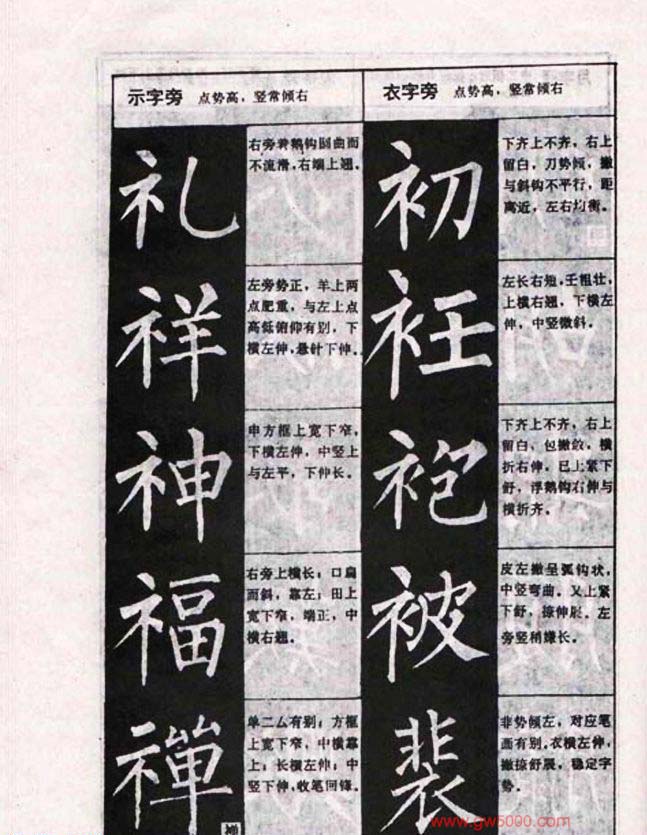 示字旁 点势高，竖常倾右
礼
右旁背鹅钩圆曲而
不流滑，右端上翘。
祥
左旁势正，羊上两
点肥重，与左上点
高低俯仰有别，下
横左伸，悬针下伸。
神
申方框上宽下窄，
下横左伸，中竖上
与左平，下伸长。
福
右旁上横长；口扁
而斜，靠左；田上
宽下窄，端正，中
横右翘。
禅
单二厶有别；方框
上宽下窄，中横靠
上；长横左伸；中
竖下伸，收笔回锋。
衣字旁 点势高，竖常倾右
初
下齐上不齐，右上
留白，刀势倾，撇
与斜钩不平行，距
离近，左右均衡。
衽
左长右短，壬粗壮，
上横右翘，下横左
伸，中竖微斜。
袍
下齐上不齐，右上
留白，包撇敛，横
折右伸，已上紧下
舒，浮鹅钩右伸与
横折齐。
被
皮左撇呈弧钩状，
中竖弯曲。又上紧
下舒，捺伸展。左
旁竖稍嫌长。
裴
非势倾左，对应笔
画有别。衣横左伸，
撇捺舒展，稳定字
势。
www.gw5000.com